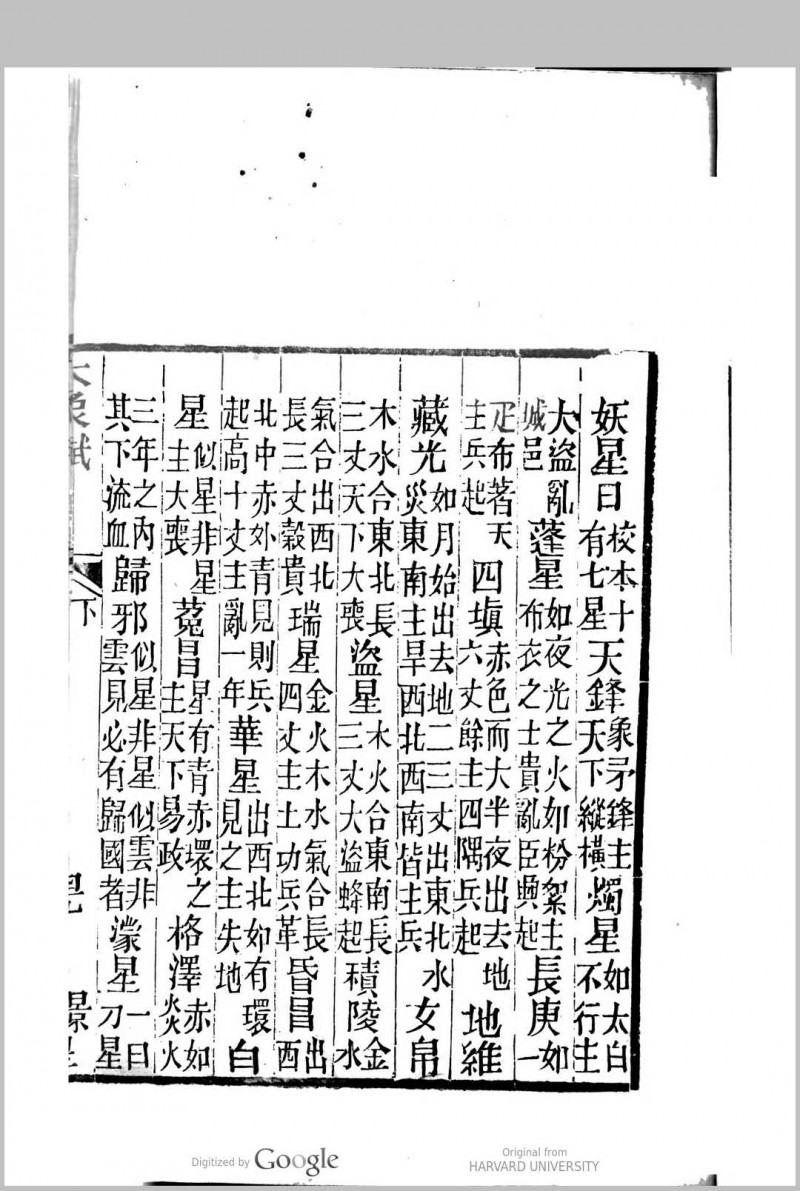 妖星曰校本十有七星天鋒象矛鋒主天下縱橫燭星如太白不行主
大盜亂城邑蓬星如夜光之火如粉絮主布衣之士貴亂臣興起長庚如一
疋布著天主兵起四塡赤色而大半夜出去地六丈餘主四隅兵起地維
藏光如月始出去地二三丈出東北水災東南主旱西北西南皆主兵女帛
木水合東北長三丈天下大喪盜星木火合東南長三丈大盜蜂起積陵金水
氣合出西北長三丈穀貴瑞星金火木水氣合長四丈主土功兵革昏昌出西
北中赤外青見則兵起高十丈主亂一年華星出西北如有環見之主失地白
星似星非星主大喪菟昌星有青赤環之主天下易政格澤赤如炎火
三年之內其下流血歸邪似星非星似雲非雲見必有歸國者濛星一曰刀星
大象賦
下
Digitized by Google
Original from
HARVARD UNIVERSITY